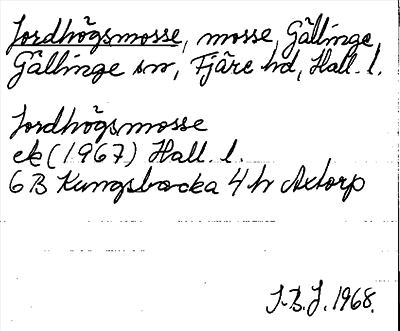 Jordhögsmosse, mosse, Gällinge,
Gällinge sn, Fjäre hd, Hall. l.
Jordhögsmosse
ek (1967) Hall. l.
6B Kungsbacka 4 h Axtorp
I.B.J. 1968.